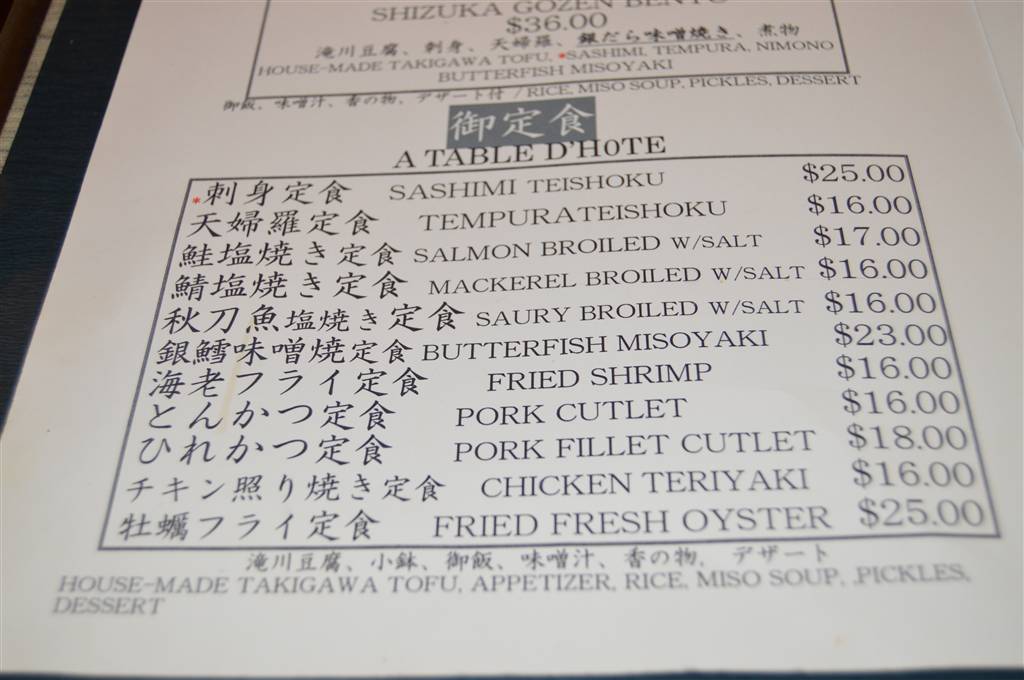 SHIZUKA GOZEN BENTO
$36.00
滝川豆腐、刺身、天婦羅、銀だら味噌焼き、煮物
HOUSE-MADE TAKIGAWA TOFU, *SASHIMI, TEMPURA, NIMONO
BUTTERFISH MISOYAKI
御飯、味噌汁、香の物、デザート付 / RICE, MISO SOUP, PICKLES, DESSERT
御定食
A TABLE D'HOTE
*刺身定食 SASHIMI TEISHOKU $25.00
天婦羅定食 TEMPURA TEISHOKU $16.00
鮭塩焼き定食 SALMON BROILED W/SALT $17.00
鯖塩焼き定食 MACKEREL BROILED W/SALT $16.00
秋刀魚塩焼き定食 SAURY BROILED W/SALT $16.00
銀鱈味噌焼定食 BUTTERFISH MISOYAKI $23.00
海老フライ定食 FRIED SHRIMP $16.00
とんかつ定食 PORK CUTLET $16.00
ひれかつ定食 PORK FILLET CUTLET $18.00
チキン照り焼き定食 CHICKEN TERIYAKI $16.00
牡蠣フライ定食 FRIED FRESH OYSTER $25.00
滝川豆腐、小鉢、御飯、味噌汁、香の物、デザート
HOUSE-MADE TAKIGAWA TOFU, APPETIZER, RICE, MISO SOUP, PICKLES,
DESSERT